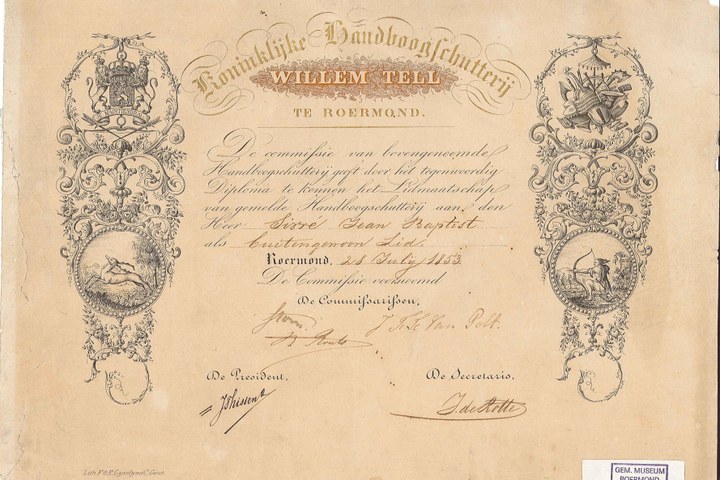 Koninklijke Handboogschutterij
WILLEM TELL
TE ROERMOND.
De commissie van bovengenoemde
Handboogschutterij geeft door het tegenwoordig
Diploma te kennen het Lidmaatschap
van gemelde Handboogschutterij aan den
Heer Sirré Jean Baptist
als buitengewoon Lid.
Roermond, 28 July 1853
De Commissie voornoemd
De Commissarissen,
Van Pelt.
De President, De Secretaris,
GEM. MUSEUM
ROERMOND